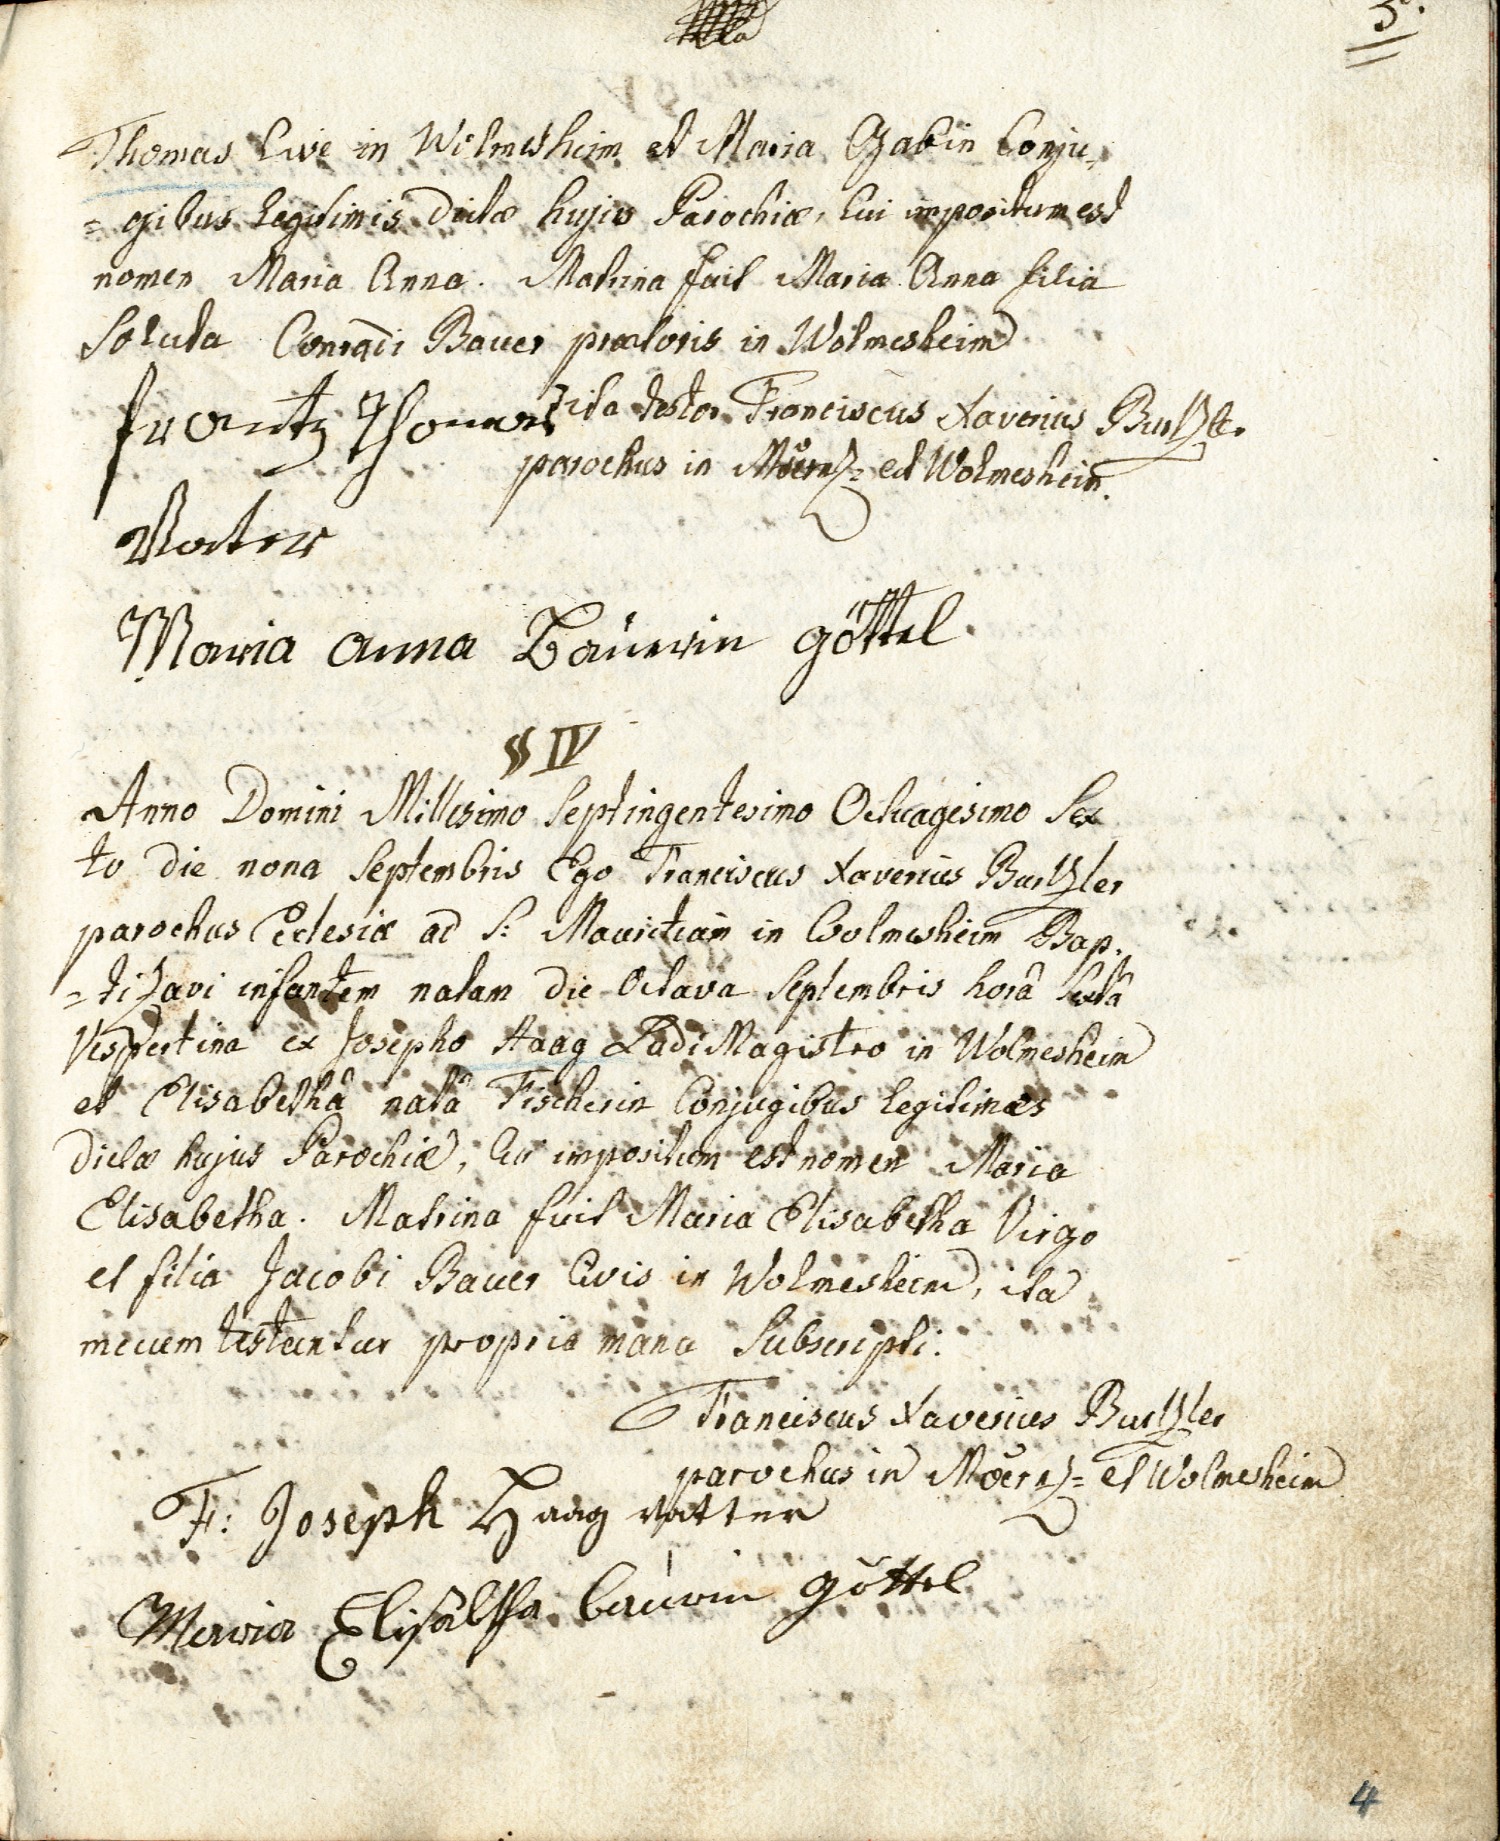 5.
Thomas Cive in Wolmesheim et Maria Gabin Conju-
= gibus legitimis dictæ hujus Parochiæ, Cui impositum est
nomen Maria Anna. Matrina fuit Maria Anna filia
Soluta Conradi Bauer prætoris in Wolmesheim
frantz Thomas ita testor Franciscus Xaverius Burtzler
parochus in Moertz= et Wolmesheim.
Vater
Maria anna Bauerin göttel.
§ IV
Anno Domini Millesimo Septingentesimo Octuagesimo Sex
to die nona Septembris Ego Franciscus Xaverius Burtzler
parochus Eclesiæ ad S: Mauritium in Wolmesheim Bap-
= tizavi infantem natam die Octava Septembris horâ Sextâ
Vespertina ex Josepho Haag LudiMagistro in Wolmesheim
et Elisabethâ natâ Fischerin Conjugibus legitimes
dictæ hujus Parochiæ, Cui impositum est nomen Maria
Elisabetha. Matrina fuit Maria Elisabetha Virgo
et filia Jacobi Bauer Civis in Wolmesheim, ita
mecum testantur propria manu Subscripti.
Franciscus Xaverius Burtzler
parochus in Moertz= et Wolmesheim
F: Joseph Haag vatter
Maria Elisabetha bauerin göttel
4